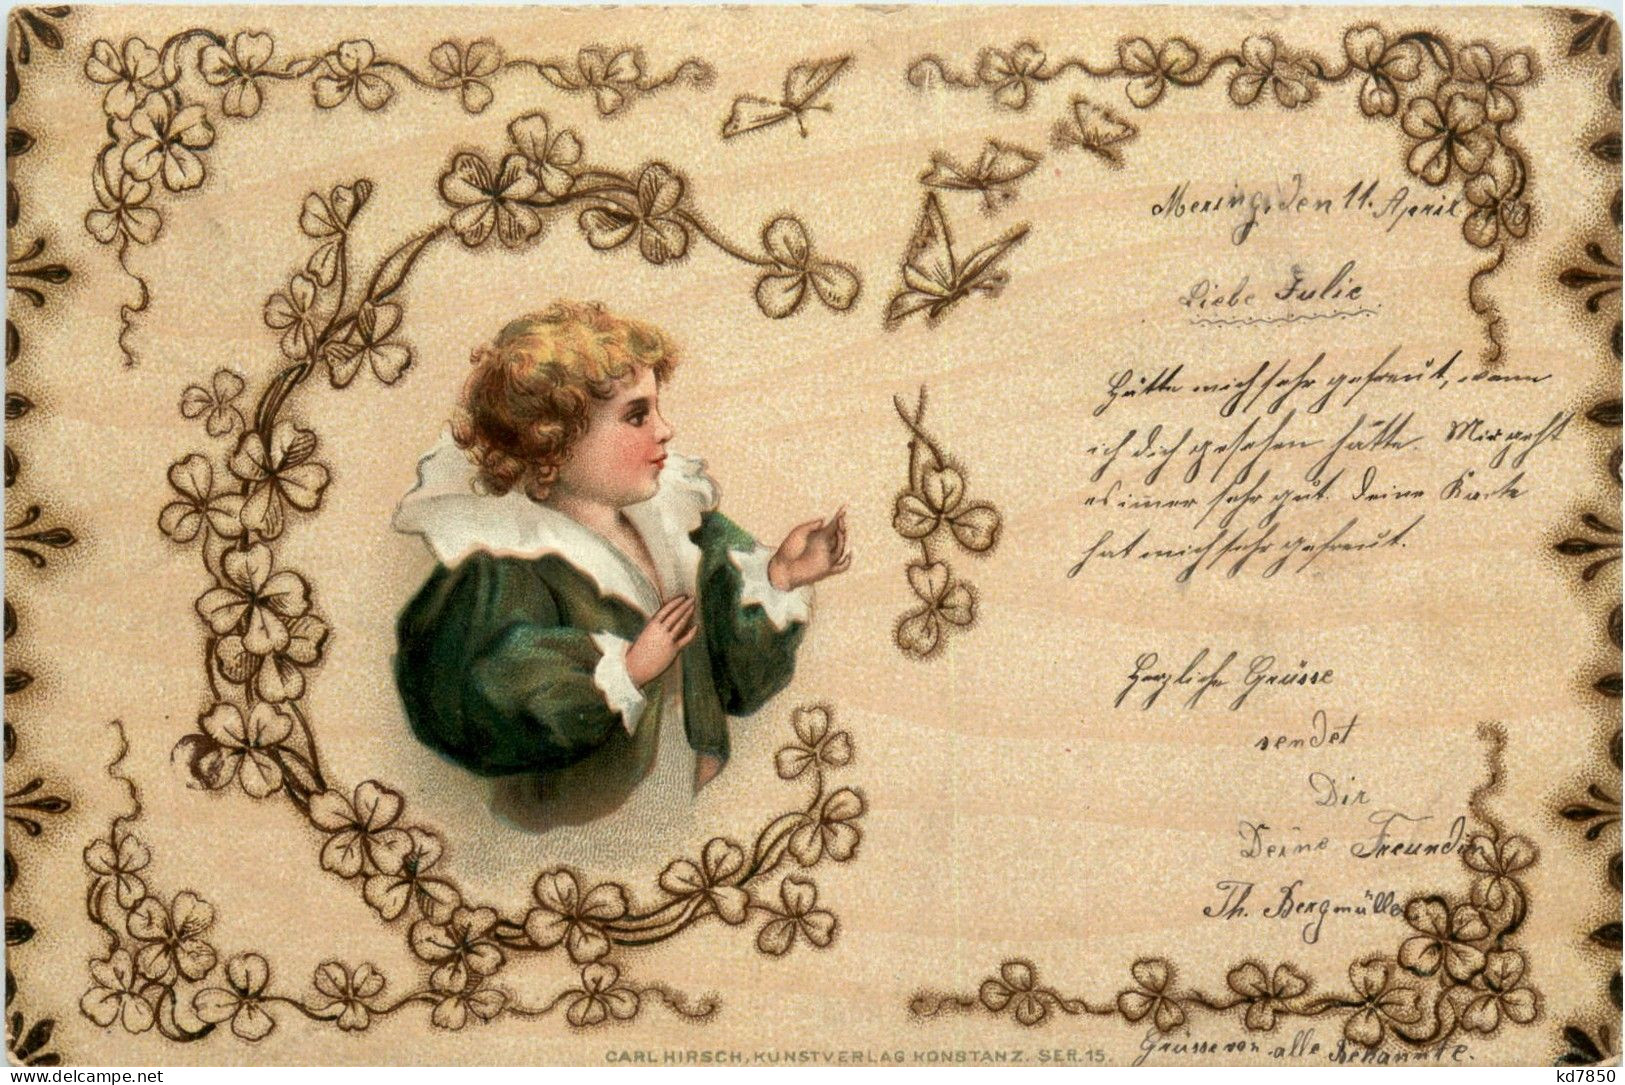 Mering, den 11. April
Liebe Julie
Hätte mich sehr gefreut, wenn
ich dich gesehen hätte. Mir geht
es im̅er sehr gut. Deine Karte
hat mich sehr gefreut.
Herzliche Grüsse
sendet
Dir
Deine Freundin
Th. Bergmüller
Grüsse von alle Bekannte.
CARL HIRSCH, KUNSTVERLAG KONSTANZ. SER. 15.
kd7850